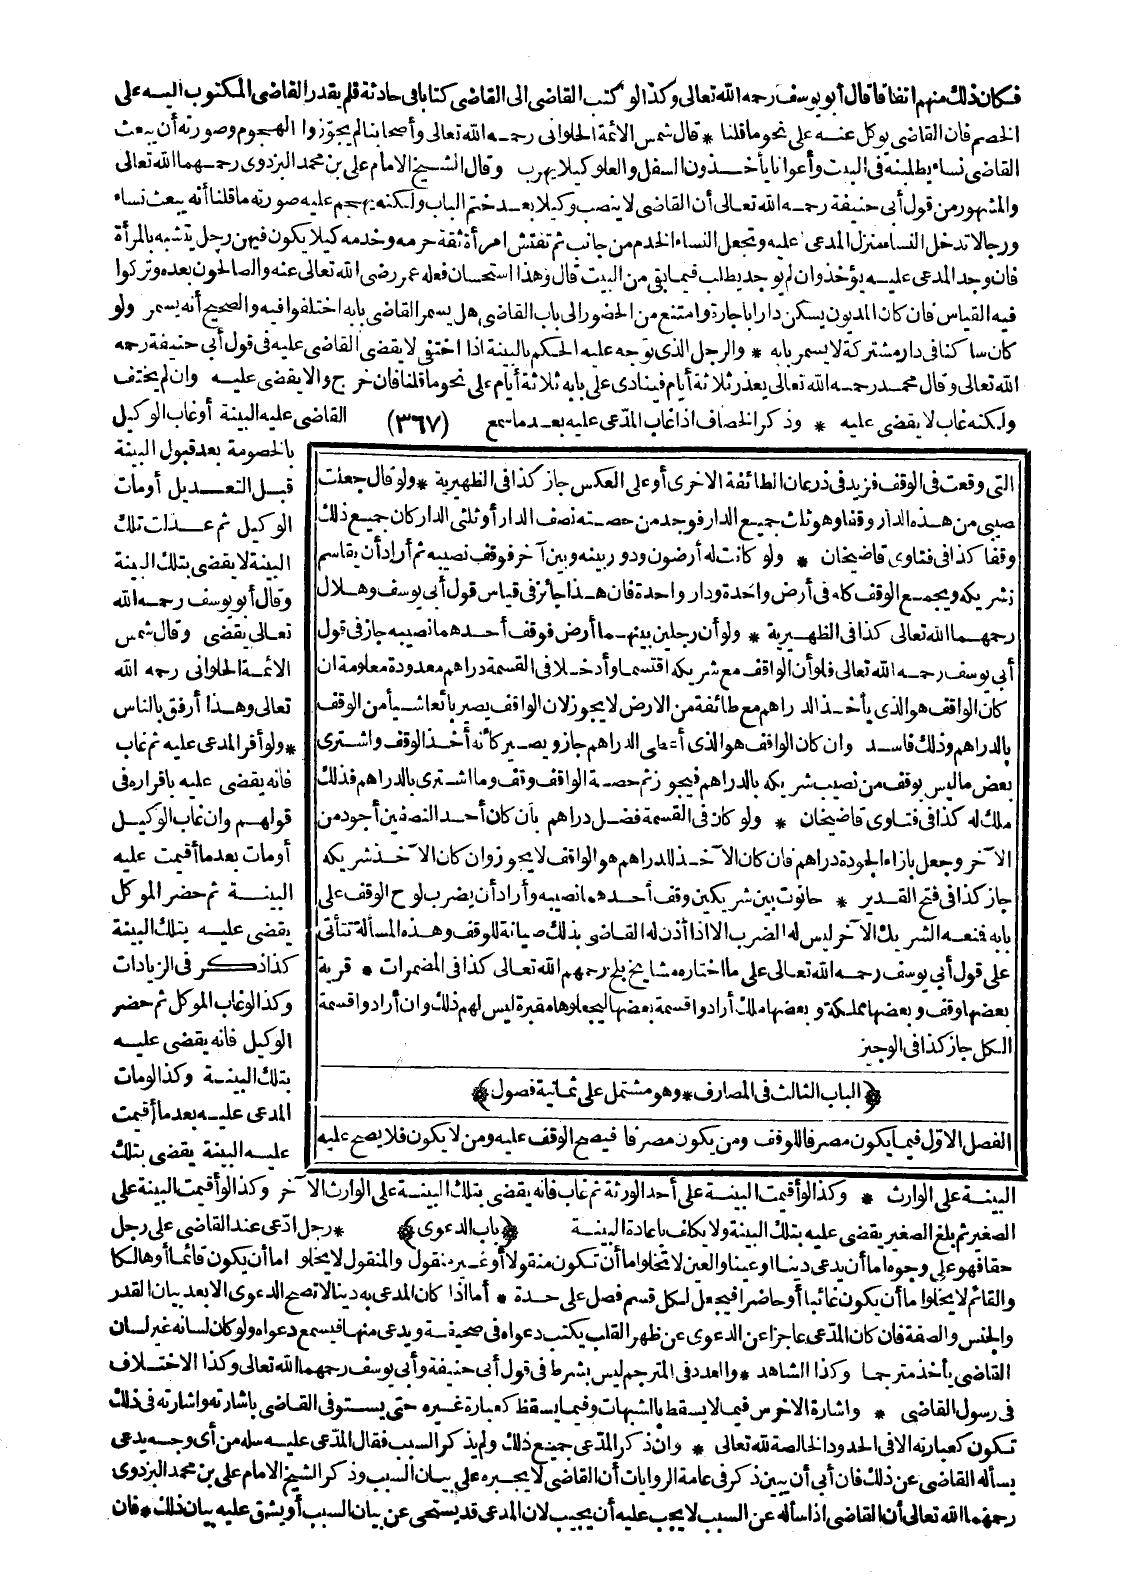 فكان ذلك منهم اتفاقا قال أبو يوسف رحمه الله تعالى وكذا لو كتب القاضى الى القاضى كتابا فى حادثة فلم يقدر القاضى المكتوب اليه على
الخصم فان القاضى يوكل عنه على نحو ما قلنا * قال شمس الائمة الحلوانى رحمه الله تعالى وأصحابنا لم يجوّزوا الهجوم وصورته أن يبعث
القاضى نساء يطلبنه فى البيت وأعوانا يأخذون السفل والعلو كيلا يهرب وقال الشيخ الامام على بن محمد البزدوى رحمهما الله تعالى
والمشهور من قول أبى حنيفة رحمه الله تعالى أن القاضى لا ينصب وكيلا بعد ختم الباب ولكنه يهجم عليه صورته ما قلنا أنه يبعث نساء
ورجالا تدخل النساء منزل المدعى عليه وتجعل النساء الخدم من جانب ثم تفتش امرأة ثقة حرمه وخدمه كيلا يكون فيهن رجل يتشبه بالمرأة
فان وجد المدعى عليه يؤخذ وان لم يوجد يطلب فيما بقى من البيت قال وهذا استحسان فعله عمر رضى الله تعالى عنه والصالحون بعده وتركوا
فيه القياس فان كان المديون يسكن دارا باجارة وامتنع من الحضور الى باب القاضى هل يسمر القاضى بابه اختلفوا فيه والصحيح أنه يسمر ولو
كان ساكنا فى دار مشتركة لا يسمر بابه * والرجل الذى توجه عليه الحكم بالبينة اذا اختفى لا يقضى القاضى عليه فى قول أبى حنيفة رحمه
الله تعالى وقال محمد رحمه الله تعالى يعذر ثلاثة أيام فينادى على بابه ثلاثة أيام على نحو ما قلنا فان خرج والا يقضى عليه وان لم يختف
ولكنه غاب لا يقضى عليه * وذكر الخصاف اذا غاب المدّعى عليه بعد ما سمع (٣٦٧) القاضى عليه البينة أو غاب الوكيل
بالخصومة بعد قبول البينة
قبل التعديل أو مات
الوكيل ثم عدلت تلك
البينة لا يقضى بتلك البينة
وقال أبو يوسف رحمه الله
تعالى يقضى وقال شمس
الائمة الحلوانى رحمه الله
تعالى وهذا أرفق بالناس
* ولو أقر المدعى عليه ثم غاب
فانه يقضى عليه باقراره فى
قولهم وان غاب الوكيل
أو مات بعد ما أقيمت عليه
البينة ثم حضر الموكل
يقضى عليه بتلك البينة
كذا ذكر فى الزيادات
وكذا لو غاب الموكل ثم حضر
الوكيل فانه يقضى عليه
بتلك البينة وكذا لو مات
المدعى عليه بعد ما أقيمت
عليه البينة يقضى بتلك
التى وقعت فى الوقف فزيد فى ذرعان الطائفة الاخرى أو على العكس جاز كذا فى الظهيرية * ولو قال جعلت
نصيبى من هذه الدار وقفا وهو ثلث جميع الدار فوجد من حصته نصف الدار أو ثلثى الدار كان جميع ذلك
وقفا كذا فى فتاوى قاضيخان * ولو كانت له أرضون ودور بينه وبين آخر فوقف نصيبه ثم أراد أن يقاسم
شريكه ويجمع الوقف كله فى أرض واحدة ودار واحدة فان هذا جائز فى قياس قول أبى يوسف وهلال
رحمهما الله تعالى كذا فى الظهيرية * ولو أن رجلين بينهما أرض فوقف أحدهما نصيبه جاز فى قول
أبى يوسف رحمه الله تعالى فلو أن الواقف مع شريكه اقتسما وأدخلا فى القسمة دراهم معدودة معلومة ان
كان الواقف هو الذى يأخذ الدراهم مع طائفة من الارض لا يجوز لان الواقف يصير بائعا شيأ من الوقف
بالدراهم وذلك فاسد وان كان الواقف هو الذى أعطى الدراهم جاز ويصير كأنه أخذ الوقف واشترى
بعض ما ليس بوقف من نصيب شريكه بالدراهم فيجوز ثم حصة الواقف وقف وما اشترى بالدراهم فذلك
ملك له كذا فى فتاوى قاضيخان * ولو كان فى القسمة فضل دراهم بأن كان أحد النصفين أجود من
الآخر وجعل بازاء الجودة دراهم فان كان الآخذ للدراهم هو الواقف لا يجوز وان كان الآخذ شريكه
جاز كذا فى فتح القدير * حانوت بين شريكين وقف أحدهما نصيبه وأراد أن يضرب لوح الوقف على
بابه فمنعه الشريك الآخر ليس له الضرب الا اذا أذن له القاضى بذلك صيانة للوقف وهذه المسألة تتأتى
على قول أبى يوسف رحمه الله تعالى على ما اختاره مشايخ بلخ رحمهم الله تعالى كذا فى المضمرات * قرية
بعضها وقف وبعضها مملكة وبعضها ملك أرادوا قسمة بعضها ليجعلوها مقبرة ليس لهم ذلك وان أرادوا قسمة
الكل جاز كذا فى الوجيز
﴿الباب الثالث فى المصارف * وهو مشتمل على ثمانية فصول﴾
الفصل الاوّل فيما يكون مصرفا للوقف ومن يكون مصرفا فيصح الوقف عليه ومن لا يكون فلا يصح عليه
البينة على الوارث * وكذا لو أقيمت البينة على أحد الورثة ثم غاب فانه يقضى بتلك البينة على الوارث الآخر وكذا لو أقيمت البينة على
الصغير ثم بلغ الصغير يقضى عليه بتلك البينة ولا يكلف باعادة البينة ﴿باب الدعوى﴾ * رجل ادّعى عند القاضى على رجل
حقا فهو على وجوه اما أن يدعى دينا أو عينا والعين لا تخلو اما أن تكون منقولا أو غير منقول والمنقول لا يخلو اما أن يكون قائما أو هالكا
والقائم لا يخلو اما أن يكون غائبا أو حاضرا فيجعل لكل قسم فصل على حدة * أما اذا كان المدعى به دينا لا تصح الدعوى الا بعد بيان القدر
والجنس والصفة فان كان المدّعى عاجزا عن الدعوى عن ظهر القلب يكتب دعواه فى صحيفة ويدعى منها فيسمع دعواه ولو كان لسانه غير لسان
القاضى يأخذ مترجما وكذا الشاهد * والعدد فى المترجم ليس بشرط فى قول أبى حنيفة وأبى يوسف رحمهما الله تعالى وكذا الاختلاف
فى رسول القاضى * واشارة الاخرس فيما لا يسقط بالشبهات وفيما يسقط كعبارة غيره حتى يستوفى القاضى باشارته واشارته فى ذلك
تكون كعبارته الا فى الحدود الخالصة لله تعالى * وان ذكر المدّعى جميع ذلك ولم يذكر السبب فقال المدّعى عليه سله من أى وجه يدعى
يسأله القاضى عن ذلك فان أبى أن يبين ذكر فى عامة الروايات أن القاضى لا يجبره على بيان السبب وذكر الشيخ الامام على بن محمد البزدوى
رحمهما الله تعالى أن القاضى اذا سأله عن السبب لا يجب عليه أن يجيب لان المدعى قد يستحى عن بيان السبب أو يشق عليه بيان ذلك * فان